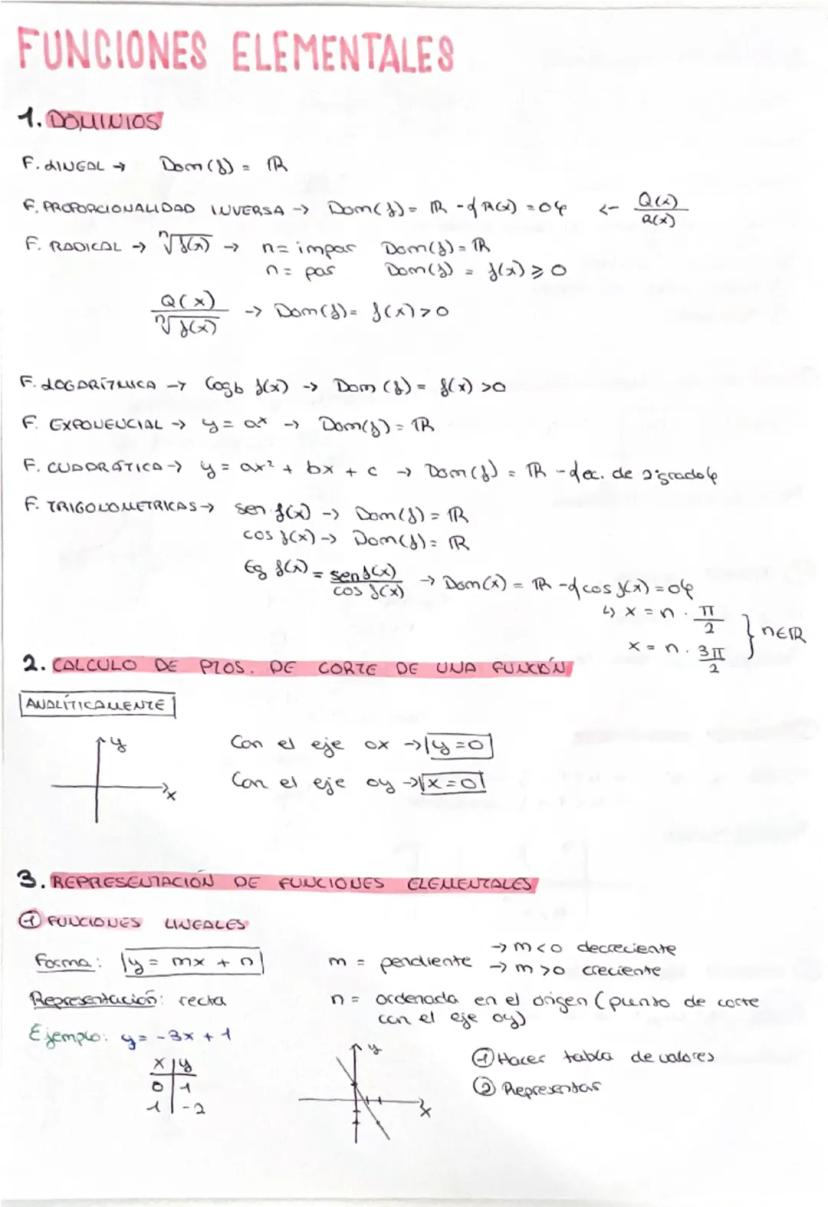 FUNCIONES ELEMENTALES
1. DOMINIOS
F. LINEAL → Dom(f) = ℝ
F. PROPORCIONALIDAD INVERSA → Dom(f) = ℝ - {Q(x) = 0} ← Q(x)/Q(x)
F. RADICAL → ⁿ√f(x) → n = impar Dom(f) = ℝ
n = par Dom(f) = f(x) ≥ 0
Q(x)/ⁿ√f(x) → Dom(f) = f(x) > 0
F. LOGARÍTMICA → logb f(x) → Dom(f) = f(x) > 0
F. EXPONENCIAL → y = aˣ → Dom(f) = ℝ
F. CUADRÁTICA → y = ax² + bx + c → Dom(f) = ℝ - {ec. de 2ºgrado}
F. TRIGONOMETRICAS → sen f(x) → Dom(f) = ℝ
cos f(x) → Dom(f) = ℝ
tg f(x) = sen f(x)/cos f(x) → Dom(x) = ℝ - {cos f(x) = 0}
↳ x = n · π/2
x = n · 3π/2 } n∈ℝ
2. CALCULO DE PTOS. DE CORTE DE UNA FUNCIÓN
ANALÍTICAMENTE
y
x
Con el eje ox → y = 0
Con el eje oy → x = 0
3. REPRESENTACIÓN DE FUNCIONES ELEMENTALES
① FUNCIONES LINEALES
Forma: y = mx + n
m = pendiente → m < 0 decreciente
→ m > 0 creciente
Representación: recta
n = ordenada en el origen (punto de corte
con el eje oy)
Ejemplo: y = -3x + 1
x | y
0 | 1
1 | -2
y
x
① Hacer tabla de valores
② Representar